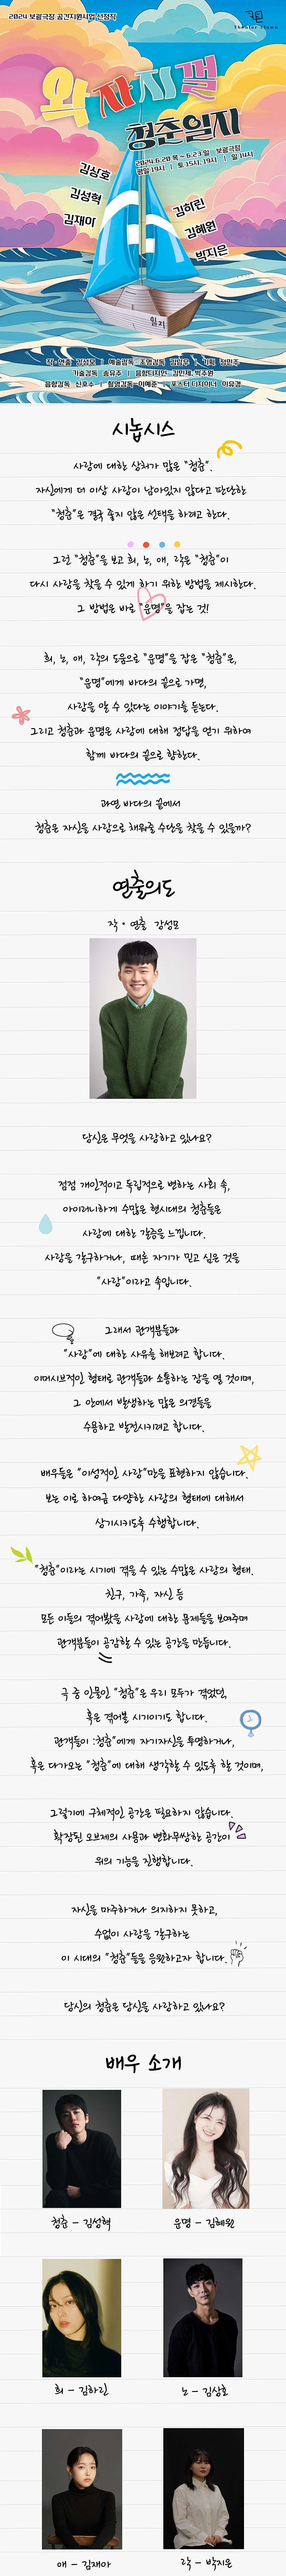 2024 보광극장 공간지원사업 선정작
Theater Town
와장창 
청춘일지
2024.6.20 목 ~ 6.23 일 보광극장
평일 19시 | 토 15시, 19시 | 일 14시
김상호
김성혁
김재아
김하린
김혜원
박지은
일지
시놉시스
사랑에 대한 상처가 많은 “청춘”.
자신에게 더 이상 사랑이 남아있지 않다고 판단한
“청춘”은 결국 좋지 않은 선택을 하려고 한다.
그런 “청춘”을 보고 희, 노, 애, 락은 “청춘”이
다시 사랑을 찾을 수 있게 하기 위해 방법을 제시한다.
그 방법은 바로 “운명”을 잡는 것!
희, 노, 애, 락의 도움으로 “운명”을 잡은 “청춘”은,
“운명”에게 바다의 끝으로 가면,
사랑을 알 수 있다는 이야기를 듣는다.
그리고 청춘과 운명은 사랑에 대해 정답을 얻기 위하여
함께 바다의 끝으로 향한다.
과연 바다의 끝에서
청춘은 자신을 사랑으로 채워줄 수단을 찾을 수 있을까?
연출의도
작 · 연출 강성모
당신은 무엇을 사랑하고 있나요?
점점 개인적이고 독립적으로 변하는 사회 속,
아이러니하게 수많은 현시대의 청춘들은
사랑에 대한 갈증을 느낍니다.
사랑을 갈구하거나, 때론 자기가 믿고 싶은 것을
“사랑”이라고 속입니다.
그래서 관객분들과
“사랑”에 대한 사유를 해보려고 합니다.
이머시브적인 형태로 관객들과 소통하는 장을 열 것이며,
그 안에서 발생하는 많은 의견들을
수용하고 발전시키려고 합니다.
배우들은 “이성적인 사랑”만을 표현하지 않습니다.
보는 이로 하여금 다양한 사랑의 형태에 대해서
상기시키도록 수행합니다.
“청춘”이라는 시기에 겪을 수 있는 수많은 사랑의 형태.
친구, 가족, 자신 등
모든 이들의 겪어봤을 사랑에 대한 문제들을 보여주며
관객분들이 공감할 수 있는 공간을 만듭니다.
극 중 인물인 “청춘”은 우리 모두가 겪었던,
혹은 겪어볼 시기이기도 합니다.
관객들이 :청춘”에게 자기자신을 투영하거나,
혹은 다가오는 “청춘”에 대해 생각할 수 있도록 할 것이며,
그렇기에 구체적인 공간은 필요하지 않습니다.
확장된 오브제의 사용과 변화무쌍한 공간이
위의 기능을 진행합니다.
자신을 마주하거나 의지하지 못하고,
수없이 사랑을 갈구하는
이 시대의 “청춘”들을 응원하고자 합니다.
당신의 청춘은 당신을 사랑하고 있나요?
배우 소개
청춘 - 김성혁
운명 - 김혜원
희 - 김하린
노 - 김상호
애 - 김재아
락 - 박지은